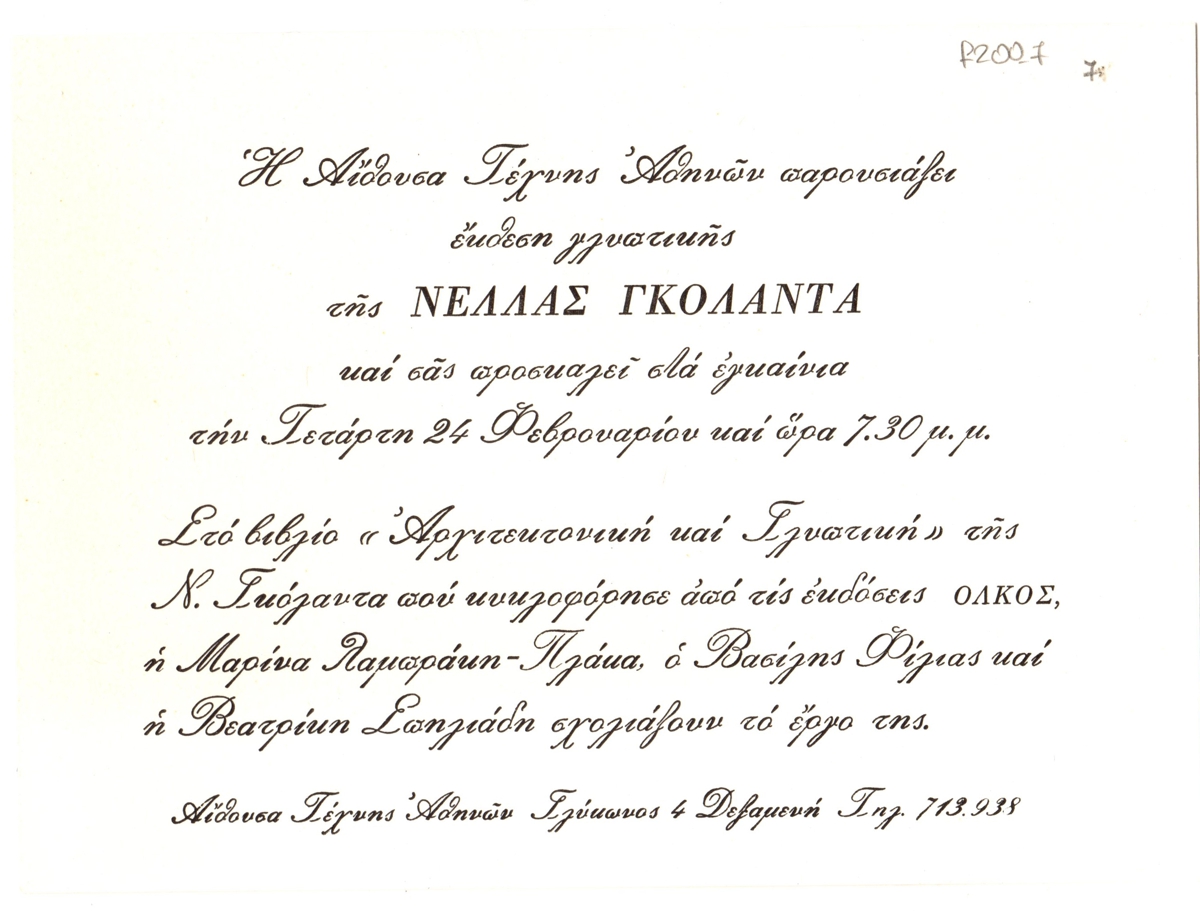 R2007
7
Ἡ Αἴθουσα Τέχνης Ἀθηνῶν παρουσιάζει
ἔκθεση γλυπτικῆς
τῆς ΝΕΛΛΑΣ ΓΚΟΛΑΝΤΑ
καί σᾶς προσκαλεῖ στά ἐγκαίνια
τήν Τετάρτη 24 Φεβρουαρίου καί ὥρα 7.30 μ. μ.
Στό βιβλίο «Ἀρχιτεκτονική καί Γλυπτική» τῆς
Ν. Γκόλαντα πού κυκλοφόρησε ἀπό τίς ἐκδόσεις ΟΛΚΟΣ,
ἡ Μαρίνα Λαμπράκη-Πλάκα, ὁ Βασίλης Φίλιας καί
ἡ Βεατρίκη Σπηλιάδη σχολιάζουν τό ἔργο της.
Αἴθουσα Τέχνης Ἀθηνῶν Γλύκωνος 4 Δεξαμενή Τηλ. 713.938